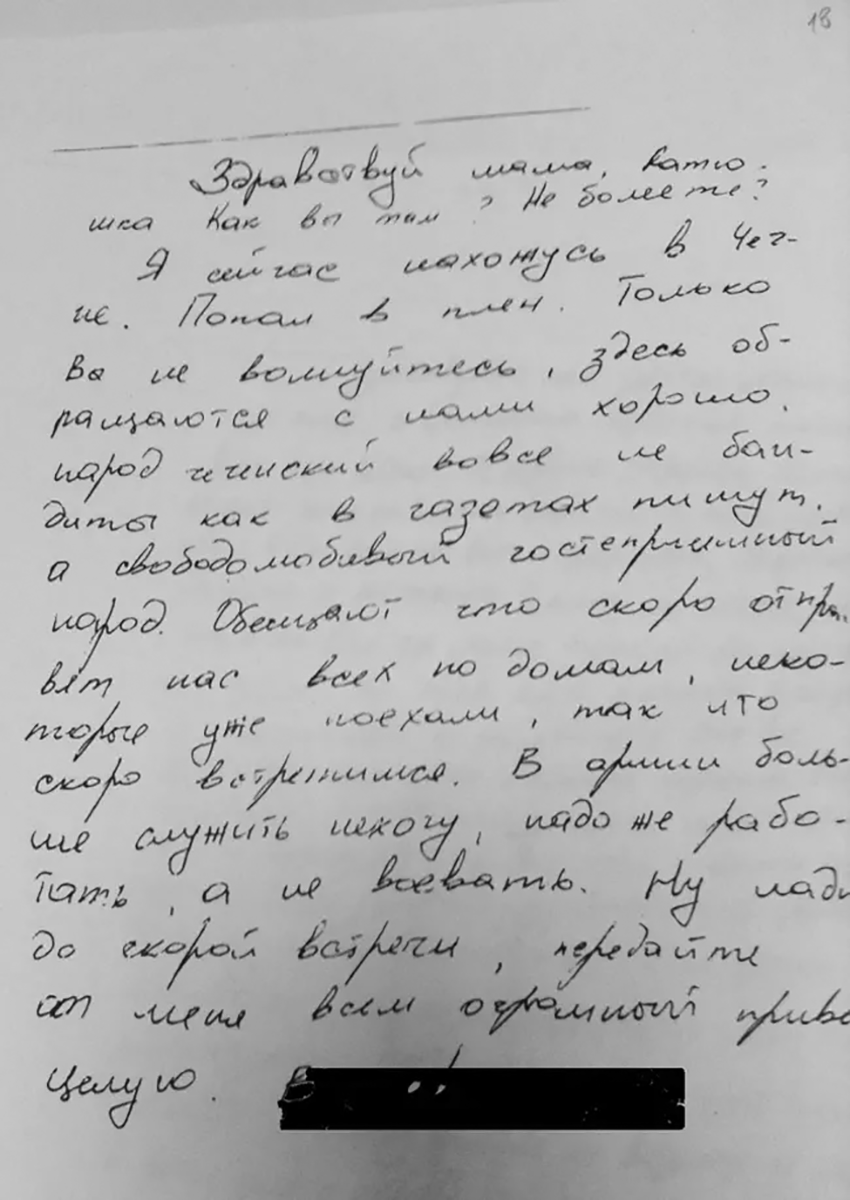 18
Здравствуй мама, Катю-
шка Как вы там? Не болеете?
Я сейчас нахожусь в Чеч-
не. Попал в плен. Только
Вы не волнуйтесь, здесь об-
ращаются с нами хорошо,
народ чеченский вовсе не бан-
диты как в газетах пишут,
а свободолюбивый гостеприимный
народ. Обещают что скоро отпра-
вят нас всех по домам, неко-
торые уже поехали, так что
скоро встретимся. В армии боль-
ше служить нехочу, надо же рабо-
тать, а не воевать. Ну
до скорой встречи, передайте
от меня всем огромный
Целую.